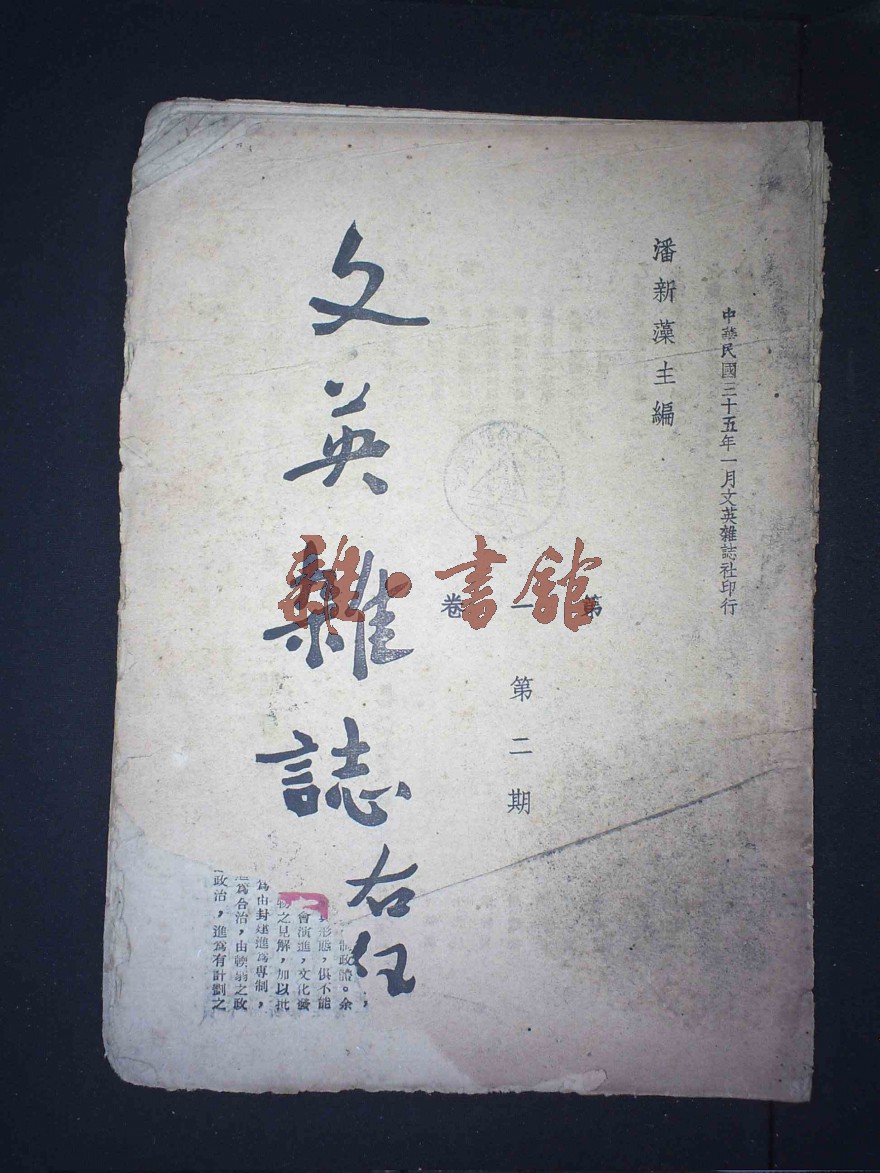 中華民國三十五年一月文英雜誌社印行
潘新藻主編
第一卷
第二期
文英雜誌
右任
雜·書館
制政體。余
形態，俱不能
會演進，文化發
物之見解，加以批
為由封建進為專制，
為合治，由
之政
政治，進為有計劃之